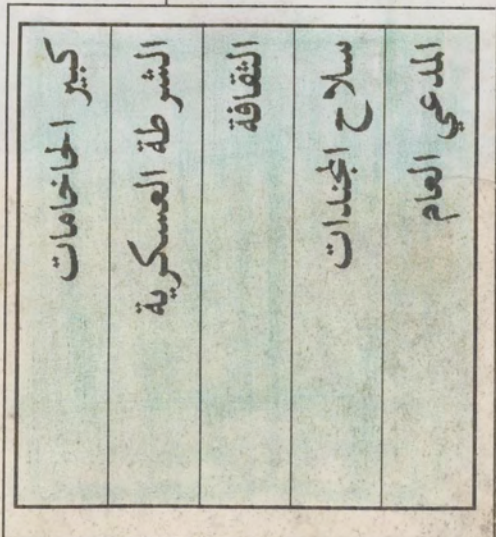 المدعي العام
سلاح المجندات
الثقافة
الشرطة العسكرية
كبير الحاخامات